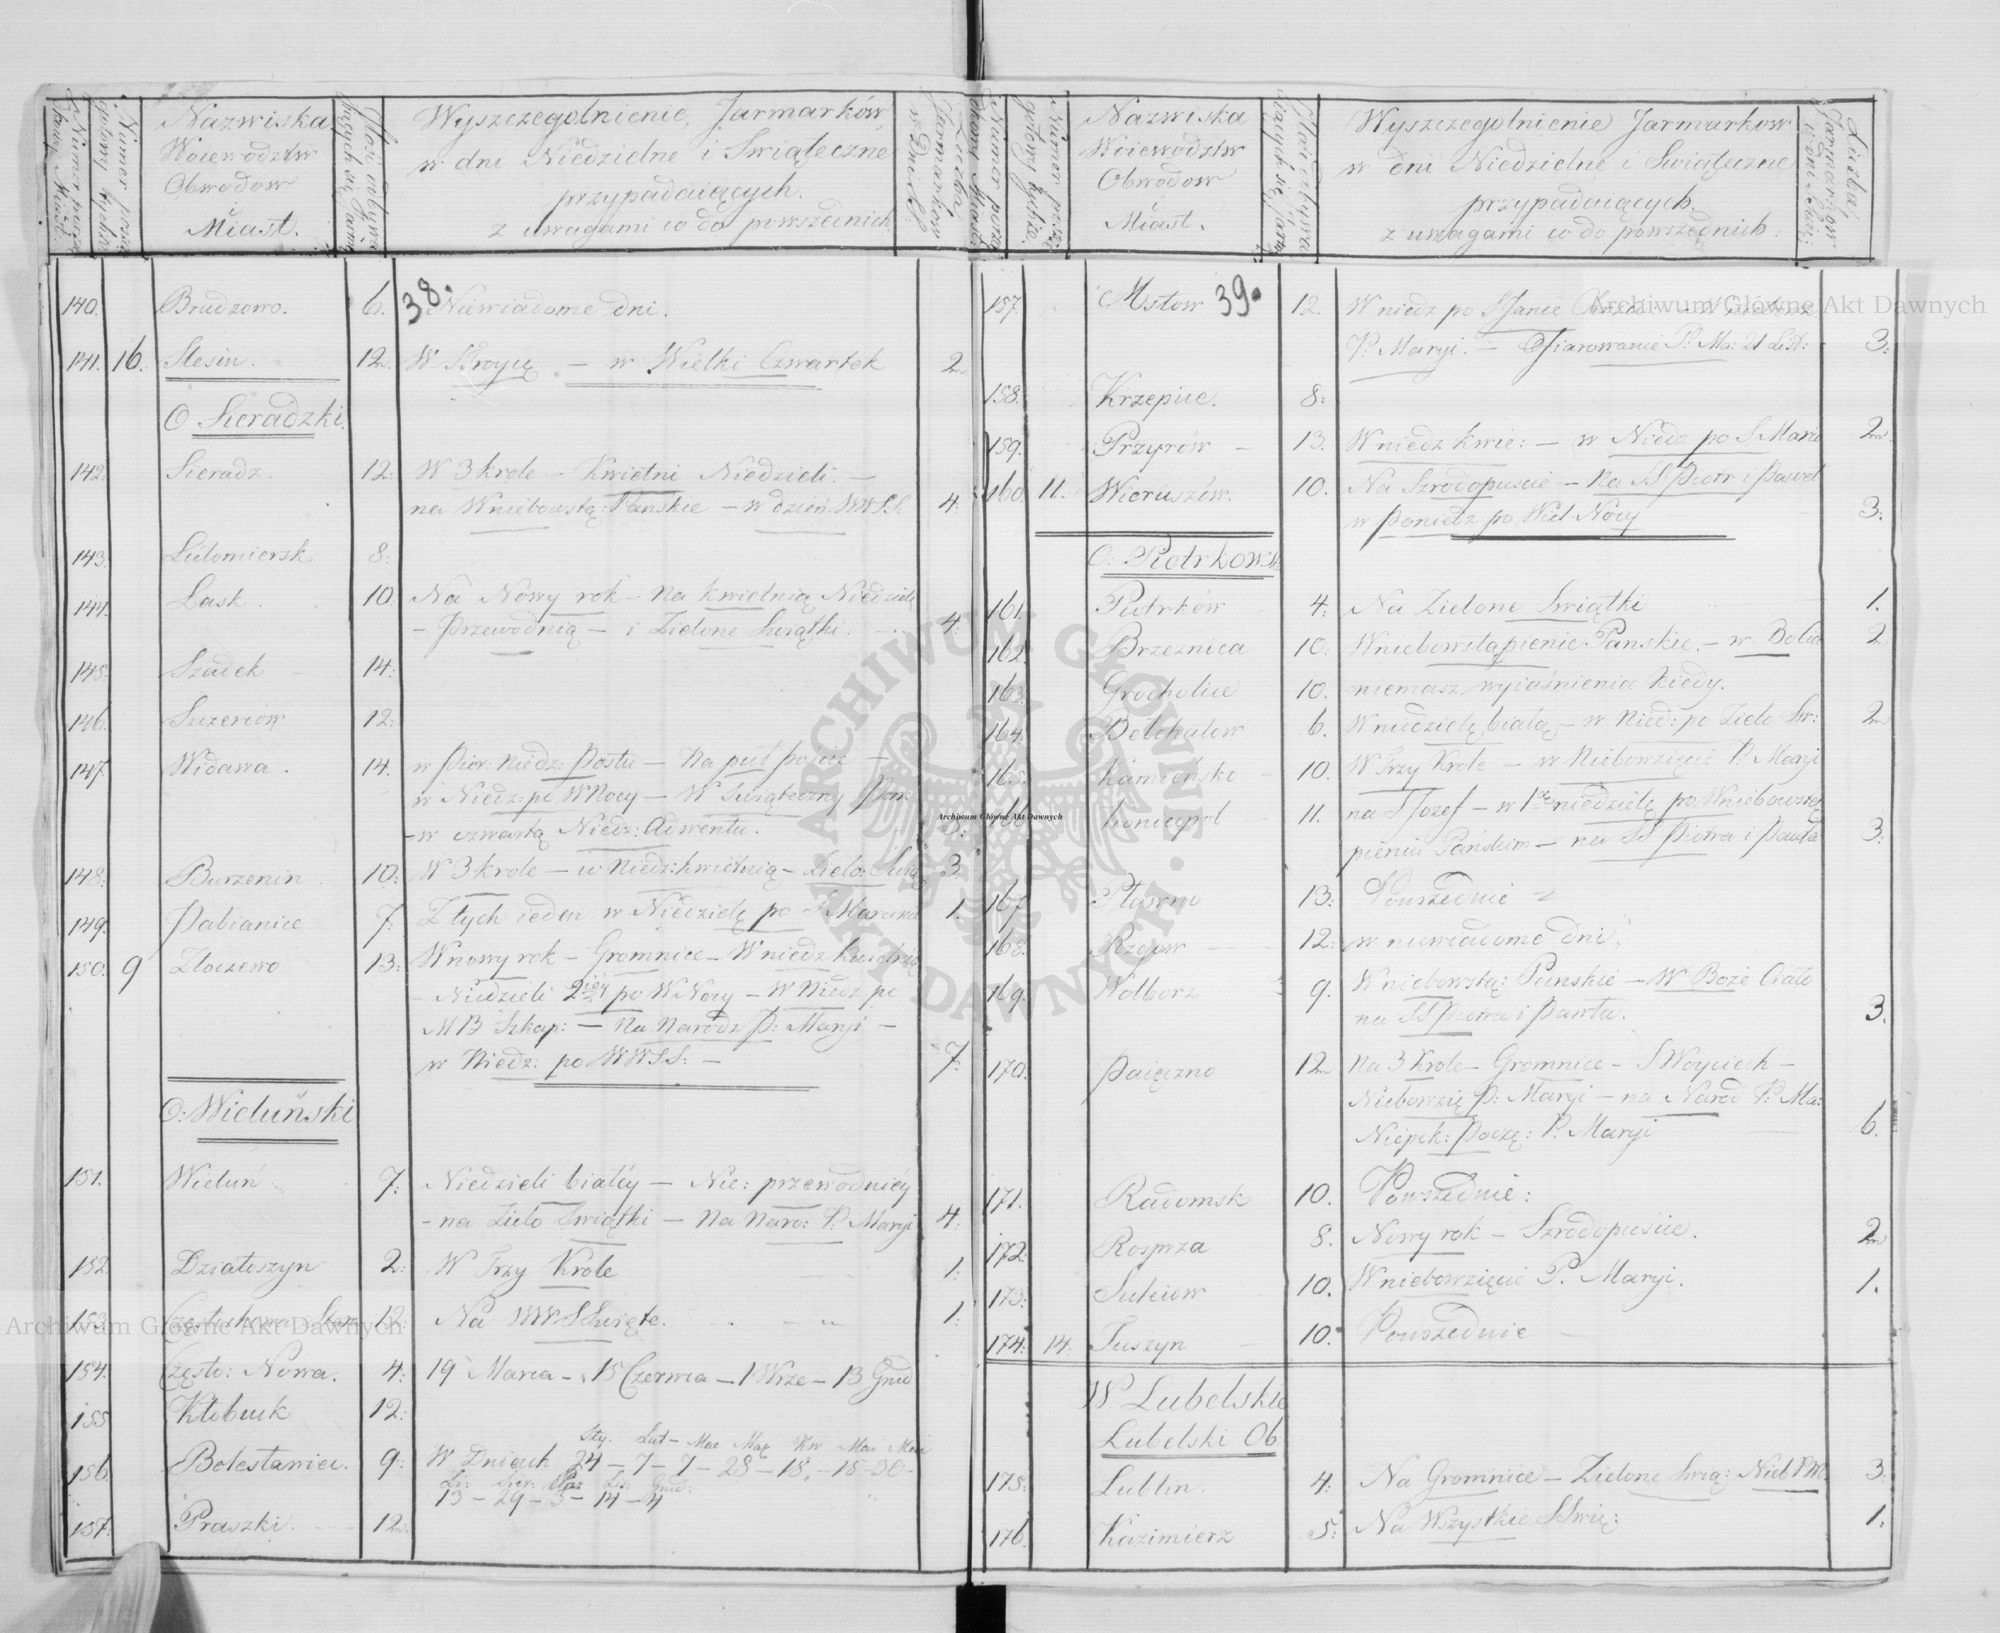 Nazwiska
Woiewodztw
Obwodow
Miast.
Wyszczegolnienie, Jarmarków
w dni Niedzielne i Swiąteczne
przypadaiących.
z uwagami co do powszednich
38.
140. Brudzewo. 6. Niewiadome dni.
141. 16. Slesin. 12. W STroycę — w Wielki Czwartek 2
O Sieradzki.
142. Sieradz. 12. W 3 krole — Kwietni Niedzieli. —
na Wniebowstą: Panskie — w dzień WWSS. 4.
143. Lutomiersk 8:
144. Lask. 10. Na Nowy rok — Na kwietnią Niedzielę
— Przewodnią — i Zielone Swiątki. 4.
145. Szadek 14.
146. 12.
147. Widawa. 14. w Pier: Niedz: Postu — Na puł poście —
w Niedz: po WNocy — W Swiąteczny Pon:
— w czwartą Niedz: Adwentu. 5.
148. Burzenin 10. W 3 krole — w Niedz: kwietnią — Zielo: Swią 3
149. Pabianice 7. Z tych ieden w Niedzielę po S Marcinie 1.
150. 9 Złoczewo 13. W nowy rok — Gromnice — W niedz
— Niedzieli 2iey po WNocy — W Niedz po
MB Szkap: — Na Narodz P: Maryi —
w Niedz: po WWSS: — 7.
O: Wieluński
151. Wieluń 7. Niedzieli białéy — Nie: przewodniéy
— na Zielo Swiątki — Na Naro: P: Maryi 4.
152. Działoszyn 2: W Trzy Krole 1.
153. Częstochowa Star 12: Na WWSSwięte. 1.
154. Często: Nowa. 4: 19 Marca — 15 Czerwca — 1 Wrze — 13 Grud
155 Kłobuck 12:
Sty. Lut — Mar Kw Mai Mai
156. Bolesławiec. 9: W Dniach 24 — 7 — 7 — 28 — 18. — 15 — 30 —
Lis: Grud:
13 — 29 — 3 — 14 — 4
157. Praszki. 12
Nazwiska
Woiewodztw
Obwodow
Miast.
Wyszczegolnienie Jarmarkow
w dni Niedzielne i Swiąteczne
przypadaiących.
z uwagami co do powszednich.
39.
157. Mstow 12. W niedz po S Janie
P: Maryi. — Ofiarowanie P: Ma: 21 List: 3:
158. Krzepice. 8:
159. Przyrów — 13. W niedz kwie: — w Niedz po S Marci 2
160. 11. Wieruszów. 10. Na Szrodopuscie — Na SS Piotr i Paweł
w Poniedz po Wiel Nocy 3:
O: Piotrkowski
161. Piotrków 4: Na Zielone Swiątki 1.
162. Brzeznica 10: Wniebowstąpienie Panskie. — w Boże 2
163. Grocholice 10. niemasz wyiaśnienia kiedy.
164. Bełchatow 6. W niedzielę białą — w Nied: po Zielo Sw: 2
165. Kamieńsko 10. W Trzy Krole — w Niebowzięcie P: Maryi
166. Koniecpol 11. na S Jozef — w 1ą niedzielę po Wniebowstą
pieniu Pańskim — na SS Piotra i Pawła 3:
167. Pławno 13: Powszednie
168. Rzgow 12: w niewiadome dni.
169. Wolborz 9. Wniebowstą: Panskie — W Boże Ciało
na SS Piotra i Pawła. 3.
170. Paięczno 12 Na 3 Krole — Gromnice — S Woyciech —
Niebowzię P: Maryi — na Narod P: Ma:
Niepok: Poczę: P. Maryi 6.
171. Radomsk 10. Powszednie:
172. Rosprza 8. Nowy rok — Szrodopuscie. 2
173. Suleiow 10. Wniebowzięcie P. Maryi. 1.
174. 14. Tuszyn 10. Powszednie —
W Lubelskie
Lubelski Ob.
175. Lublin. 4: Na Gromnice — Zielone Swią: Nieb PM 3:
176. Kazimierz 5: Na Wszystkie SSwię: 1.
Archiwum Główne Akt Dawnych
Archiwum Główne Akt Dawnych
Archiwum Główne Akt Dawnych
ARCHIWUM GŁÓWNE · AKT DAWNYCH ·